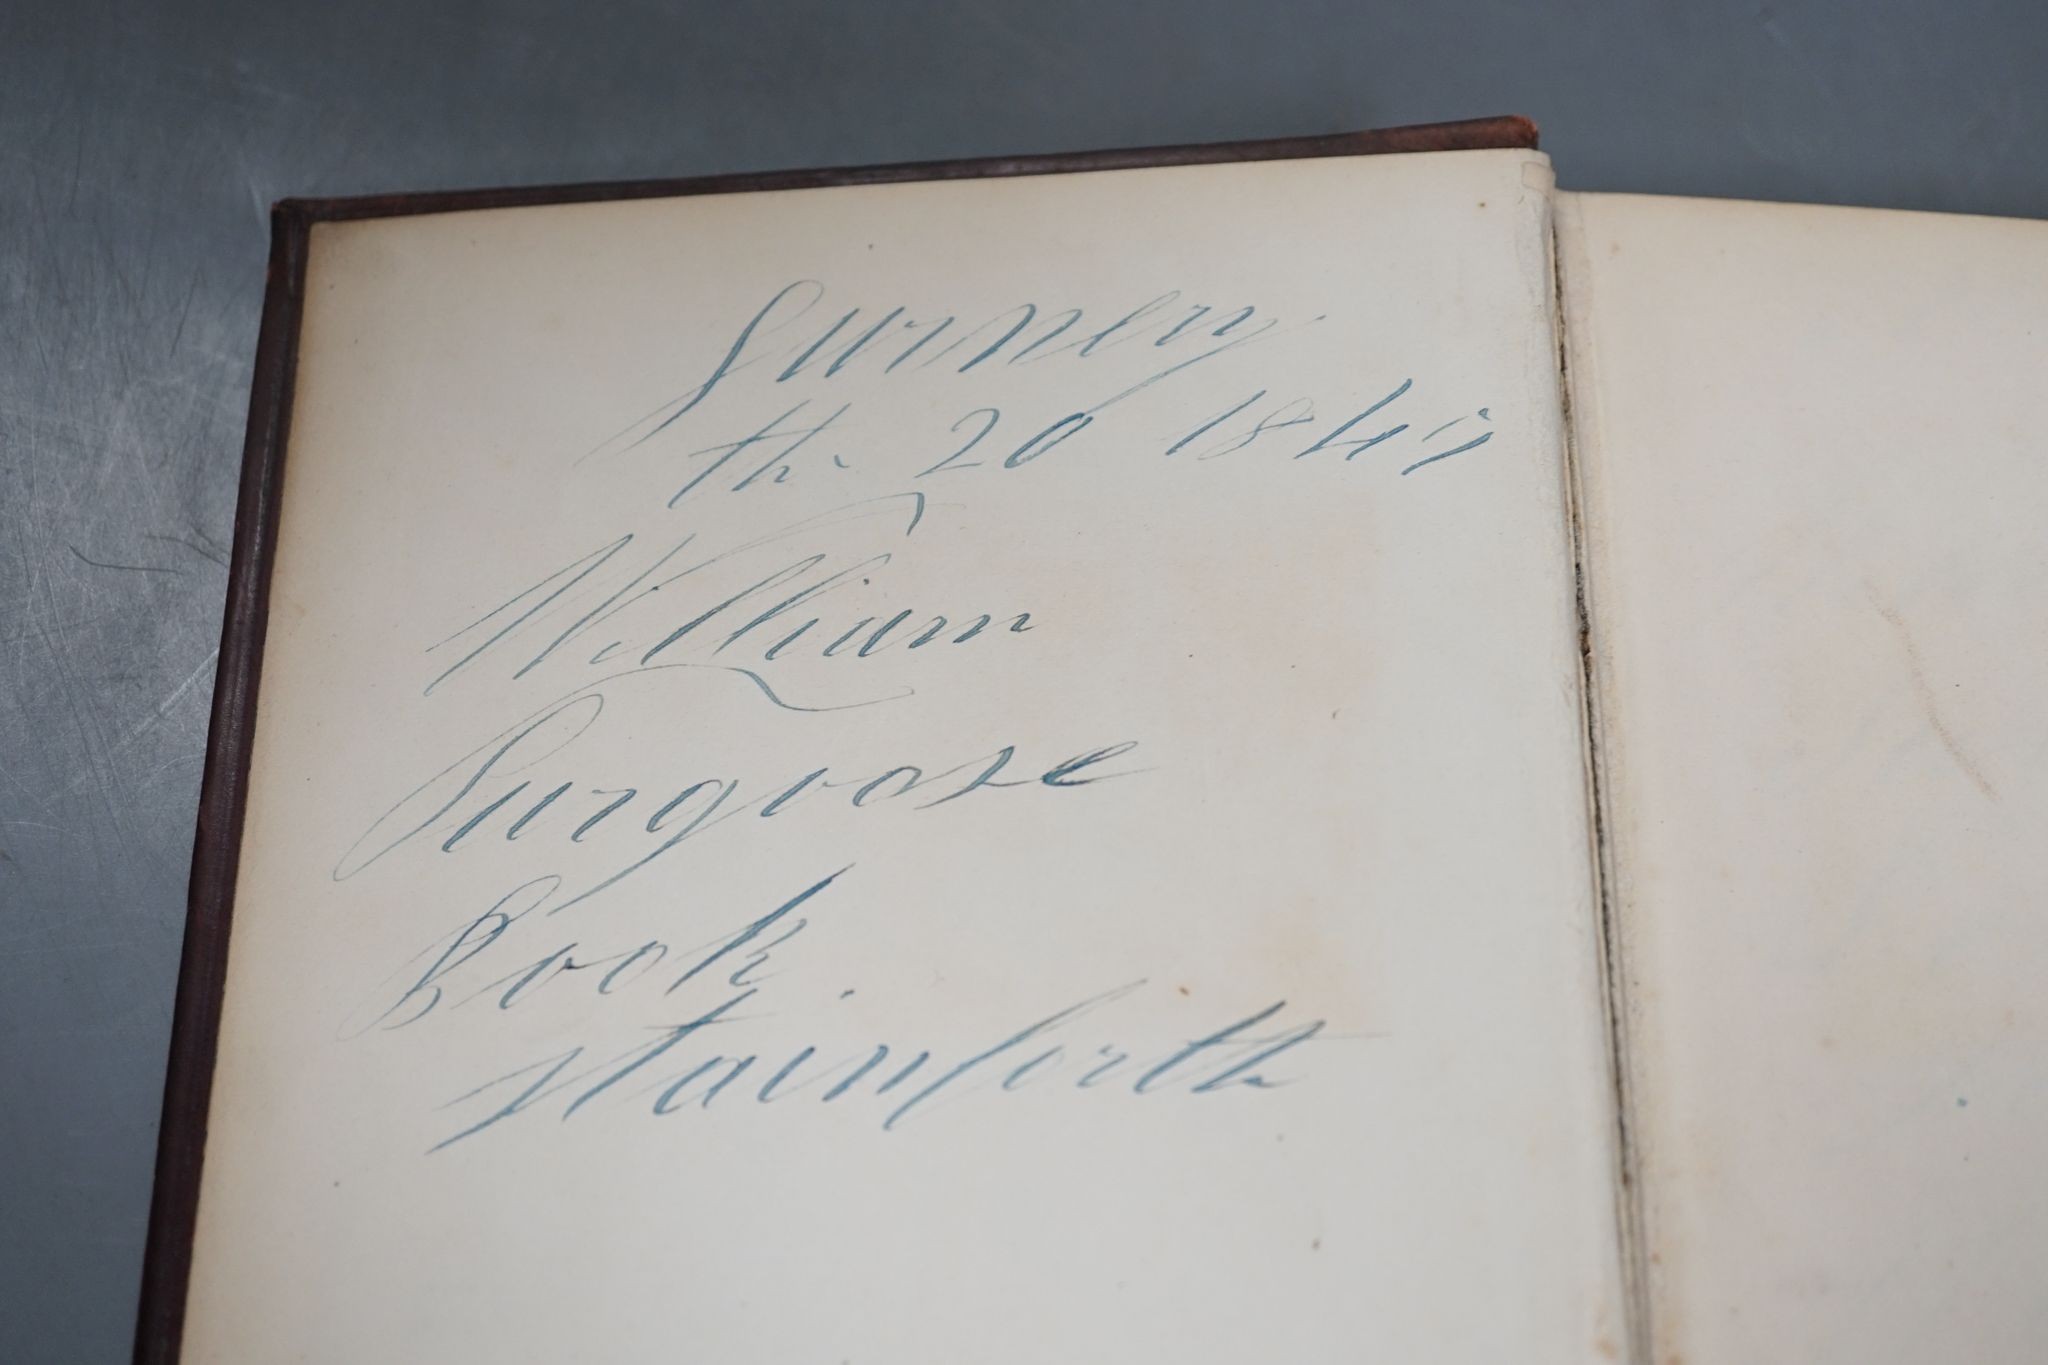 Gurnery
th. 20 184
William
Purgoose
Book
Stainforth